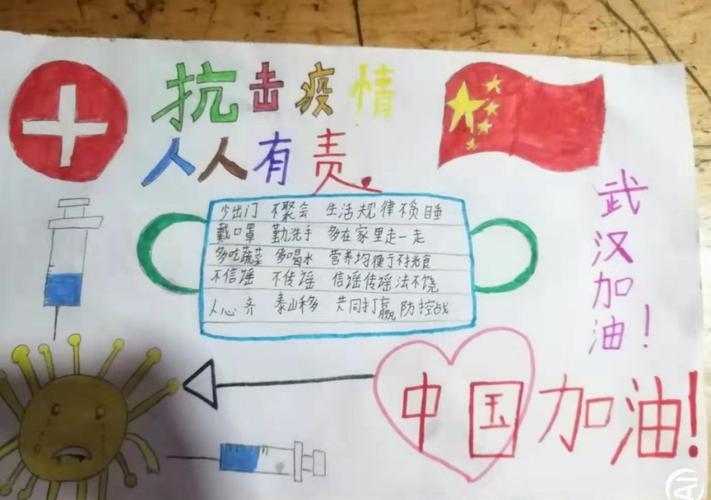 抗击疫情
人人有责
少出门 不聚会 生活规律不贪睡
戴口罩 勤洗手 多在家里走一走
多吃蔬菜 多喝水 营养均
不信谣 不传谣 信谣传谣法不饶
人心齐 泰山移 共同打赢防控战
武汉加油!
中国加油!